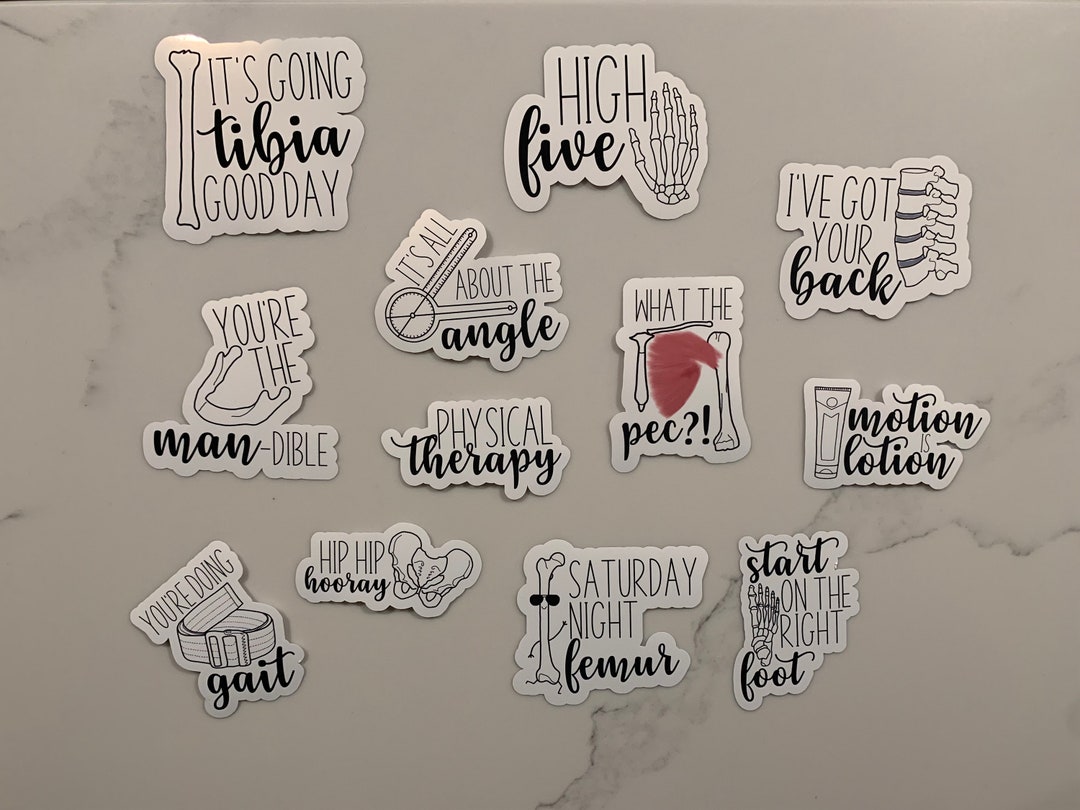 IT'S GOING
tibia
GOOD DAY
HIGH
five
I'VE GOT
YOUR
back
IT'S ALL
ABOUT THE
angle
YOU'RE
THE
man-DIBLE
WHAT THE
pec?!
PHYSICAL
therapy
motion
IS
lotion
YOU'RE DOING
gait
HIP HIP
hooray
SATURDAY
NIGHT
femur
start
ON THE
RIGHT
foot